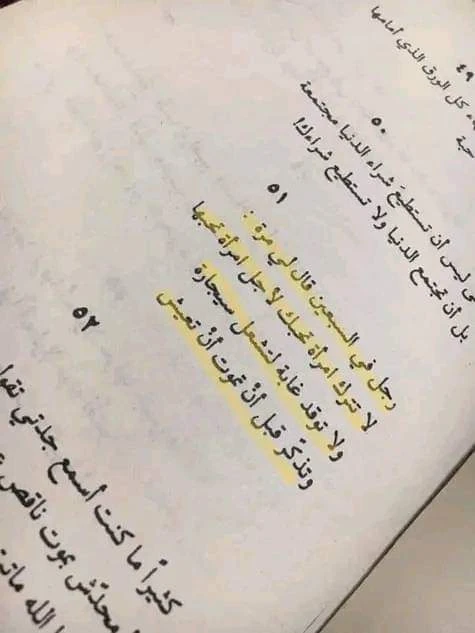 ٤٩
كل الورق الذي أمامها
٥٠
ليس أن تستطيع شراء الدنيا مجتمعة
بل أن تجتمع الدنيا ولا تستطيع شراءك!
٥١
رجل في السبعين قال لي مرة..
لا تترك امرأة تحبك لأجل امرأة تحبها
ولا توقد غابة لتشعل سيجارة
وتذكّر قبل أنْ تموت أنْ تعيش
٥٢
كثيراً ما كنت أسمع جدتي تقول
محدّش بموت ناقص
الله